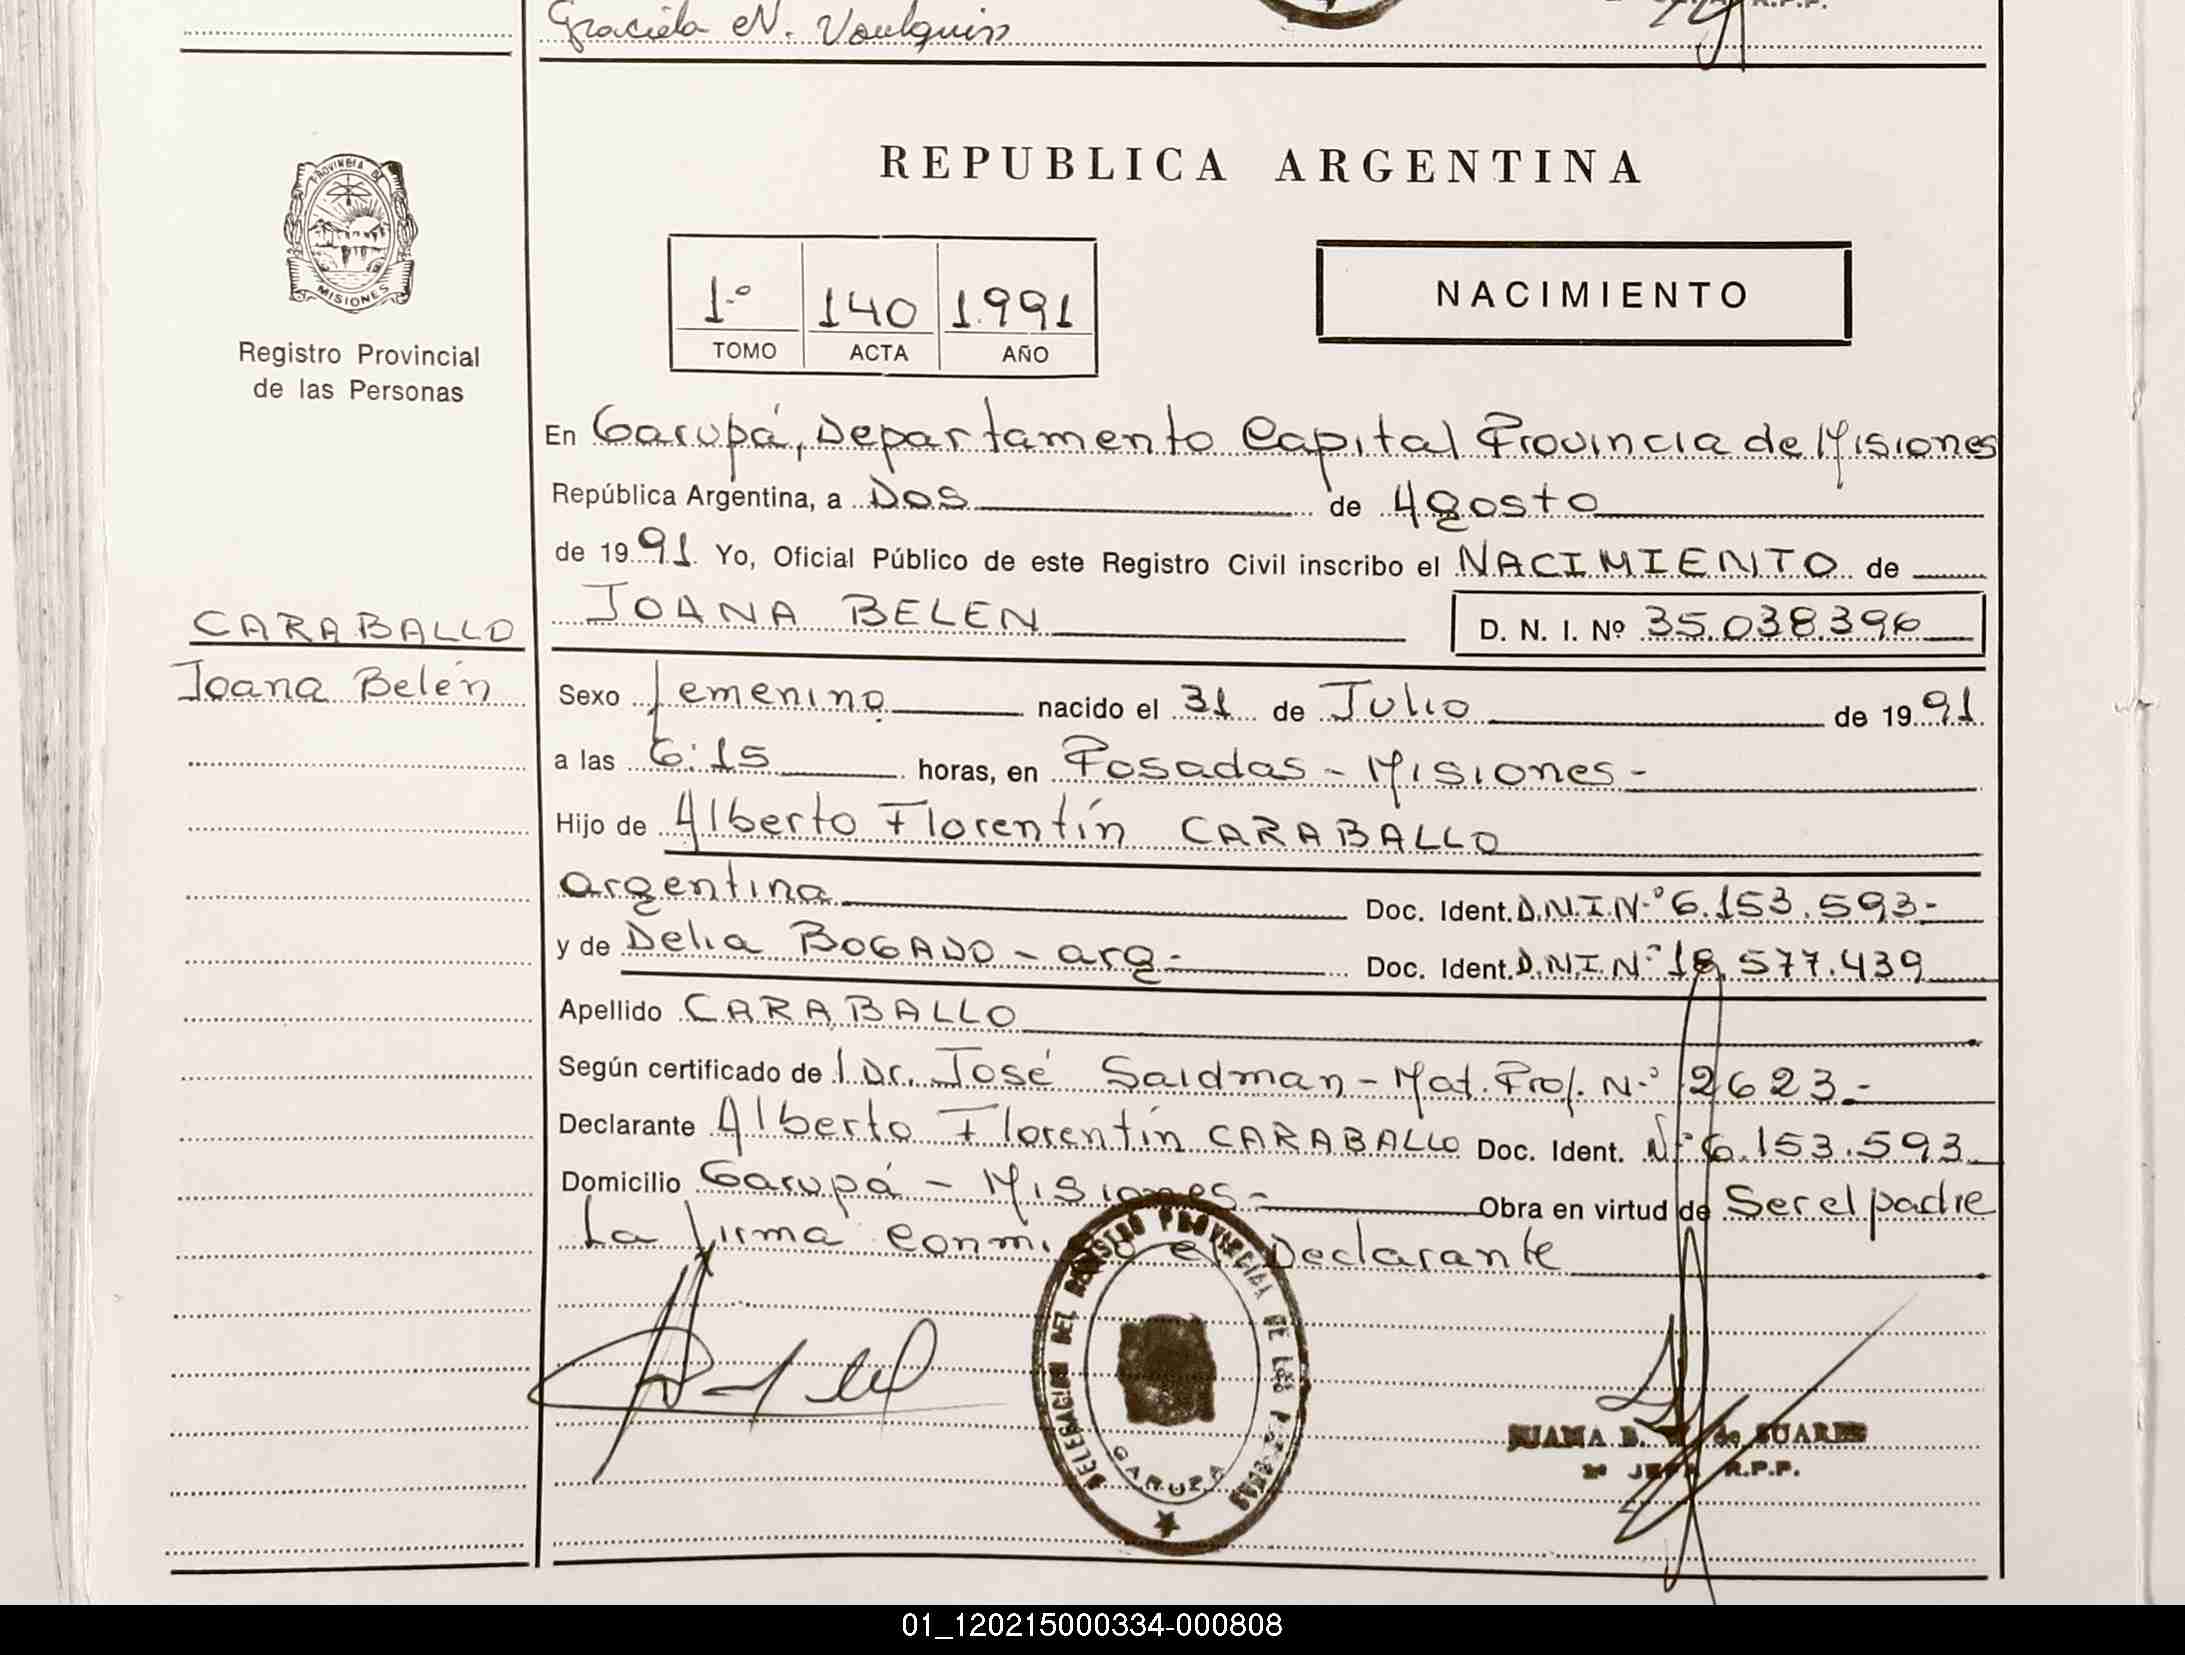 Graciela N. Vaulquin
R.P.P.
PROVINCIA DE
MISIONES
Registro Provincial
de las Personas
REPUBLICA ARGENTINA
1.º 140 1.991
TOMO ACTA AÑO
NACIMIENTO
En Garupá, Departamento Capital Provincia de Misiones
República Argentina, a Dos de Agosto
de 1991. Yo, Oficial Público de este Registro Civil inscribo el NACIMIENTO de
CARABALLO
JOANA BELEN D. N. I. Nº 35.038.396
Joana Belén
Sexo femenino nacido el 31 de Julio de 1991.
a las 6:15 horas, en Posadas - Misiones -
Hijo de Alberto Florentín CARABALLO
argentina Doc. Ident. D.N.I.N.º 6.153.593-
y de Delia BOGADO - arg.- Doc. Ident. D.N.I.N.º 18.577.439
Apellido CARABALLO
Según certificado de l Dr. José Saidman - Mat. Prof. N.º 2623.-
Declarante Alberto Florentín CARABALLO Doc. Ident. Nº 6.153.593
Domicilio Garupá - Misiones - Obra en virtud de Ser el padre
La firma conmigo el Declarante
DELEGACION DEL REGISTRO PROVINCIAL DE LAS PERSONAS
GARUPA
JUANA B. de SUARES
JEFA R.P.P.
01_120215000334-000808